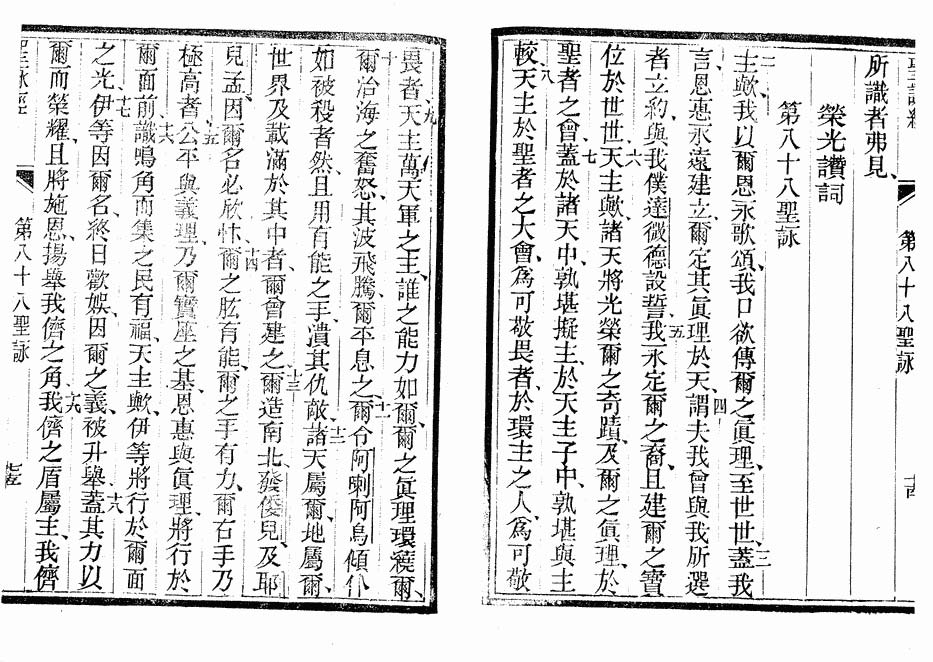 聖詠經
第八十八聖詠
所識者弗見、
榮光讚詞
第八十八聖詠
二 主歟、我以爾恩永歌頌、我口欲傳爾之眞理、至世世、三 蓋我
言、恩惠永遠建立、爾定其眞理於天、四 謂夫我曾與我所選
者立約、與我僕達微德設誓、五 我永定爾之裔、且建爾之寶
位於世世、六 天主歟、諸天將光榮爾之奇蹟、及爾之眞理、於
聖者之會、七 蓋於諸天中、孰堪擬主、於天主子中、孰堪與主
較、八 天主於聖者之大會、爲可敬畏者、於環主之人、爲可敬
畏者、九 天主萬天軍之王、誰之能力如爾、爾之眞理環繞爾、
十 爾治海之奮怒、其波飛騰、爾平息之、十一 爾令阿喇阿烏傾仆
如被殺者然、且用有能之手、潰其仇敵、十二 諸天屬爾、地屬爾、
世界及載滿於其中者、爾曾建之、十三 爾造南北、發倭兒、及耶
兒孟、因爾名必欣忭、十四 爾之肱有能、爾之手有力、爾右手乃
極高者、十五 公平與義理、乃爾寶座之基、恩惠與眞理、將行於
爾面前、十六 識鳴角而集之民有福、天主歟、伊等將行於爾面
之光、十七 伊等因爾名終日歡娛、因爾之義、被升舉、十八 蓋其力以
爾而榮耀、且將施恩、揚舉我儕之角、十九 我儕之盾屬主、我儕
聖詠經
第八十八聖詠